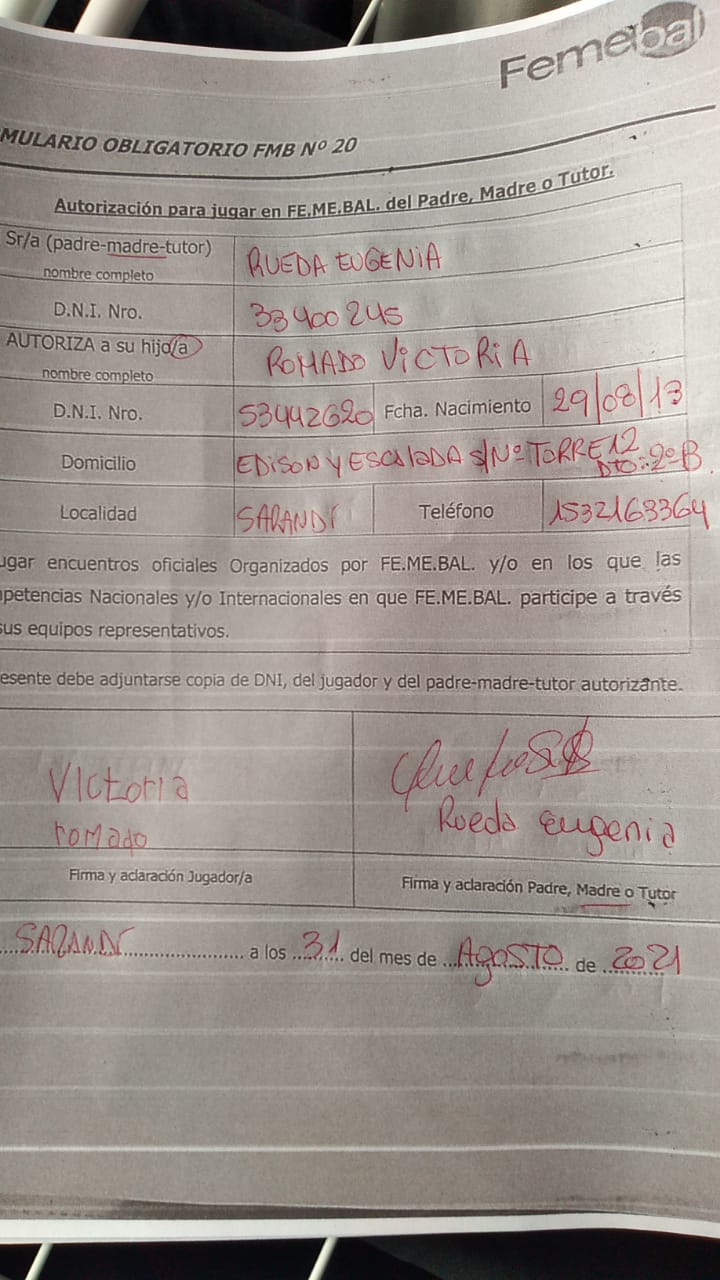 Femebal
MULARIO OBLIGATORIO FMB Nº 20
Autorización para jugar en FE.ME.BAL. del Padre, Madre o Tutor.
Sr/a (padre-madre-tutor) RUEDA EUGENIA
nombre completo
D.N.I. Nro. 33400245
AUTORIZA a su hijo/a ROMADO VICTORIA
nombre completo
D.N.I. Nro. 53442620 Fcha. Nacimiento 29/08/13
Domicilio EDISON Y ESCALADA S/Nº TORRE 12
DTO: 2º B
Localidad SARANDÍ Teléfono 1532163364
ugar encuentros oficiales Organizados por FE.ME.BAL. y/o en los que las
petencias Nacionales y/o Internacionales en que FE.ME.BAL. participe a través
sus equipos representativos.
esente debe adjuntarse copia de DNI, del jugador y del padre-madre-tutor autorizante.
Victoria
romado
Rueda Eugenia
Firma y aclaración Jugador/a Firma y aclaración Padre, Madre o Tutor
SARANDÍ a los 31 del mes de AGOSTO de 2021